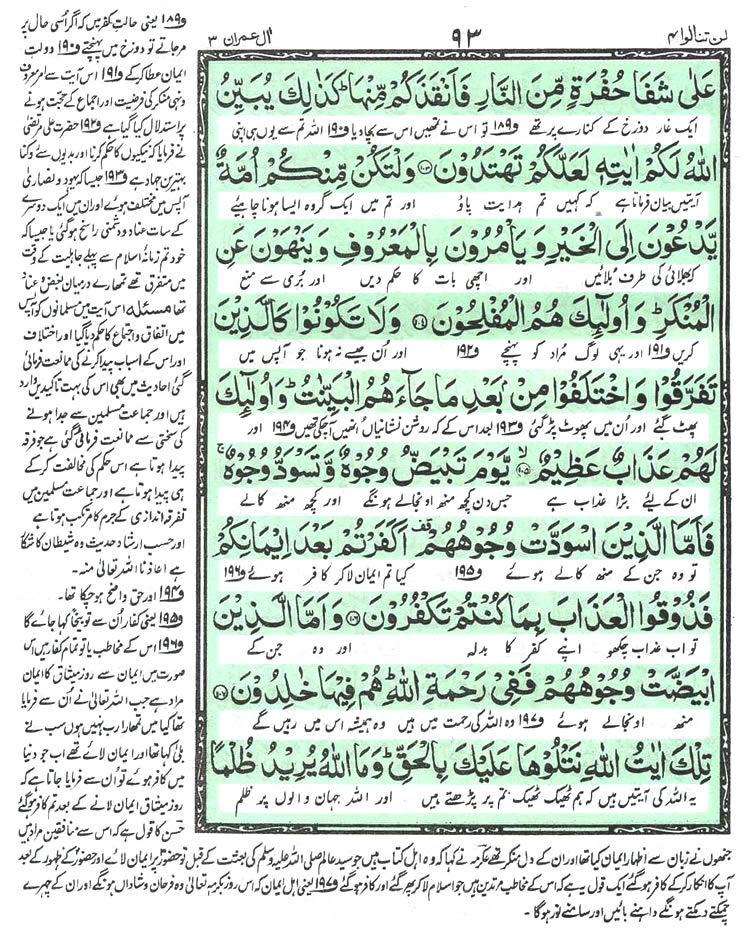 لن تنالوا ۴
۹۳
اٰل عمرٰن ۳
عَلٰى شَفَا حُفْرَةٍ مِّنَ النَّارِ فَاَنْقَذَكُمْ مِّنْهَا ؕ كَذٰلِكَ يُبَيِّنُ
ایک غار دوزخ کے کنارے پر تھے و۱۸۹ تو اس نے تمھیں اس سے بچا دیا و۱۹۰ اللہ تم سے یوں ہی اپنی
اللّٰهُ لَكُمْ اٰيٰتِهٖ لَعَلَّكُمْ تَهْتَدُوْنَ ﴿۱۰۳﴾ وَلْتَكُنْ مِّنْكُمْ اُمَّةٌ
آیتیں بیان فرماتا ہے کہ کہیں تم ہدایت پاؤ اور تم میں ایک گروہ ایسا ہونا چاہیئے
يَّدْعُوْنَ اِلَى الْخَيْرِ وَيَاْمُرُوْنَ بِالْمَعْرُوْفِ وَيَنْهَوْنَ عَنِ
کہ بھلائی کی طرف بلائیں اور اچھی بات کا حکم دیں اور بُری سے منع
الْمُنْكَرِ ؕ وَاُولٰٓئِكَ هُمُ الْمُفْلِحُوْنَ ﴿۱۰۴﴾ وَلَا تَكُوْنُوْا كَالَّذِيْنَ
کریں و۱۹۱ اور یہی لوگ مُراد کو پہنچے و۱۹۲ اور اُن جیسے نہ ہونا جو آپس میں
تَفَرَّقُوْا وَاخْتَلَفُوْا مِنْۢ بَعْدِ مَا جَآءَهُمُ الْبَيِّنٰتُ ؕ وَاُولٰٓئِكَ
پھٹ گئے اور اُن میں پھوٹ پڑ گئی و۱۹۳ بعد اس کے کہ روشن نشانیاں انھیں آچکی تھیں و۱۹۴ اور
لَهُمْ عَذَابٌ عَظِيْمٌ ﴿۱۰۵﴾ يَّوْمَ تَبْيَضُّ وُجُوْهٌ وَّتَسْوَدُّ وُجُوْهٌ ۚ
ان کے لیئے بڑا عذاب ہے جس دن کچھ منھ اونجالے ہونگے اور کچھ منھ کالے
فَاَمَّا الَّذِيْنَ اسْوَدَّتْ وُجُوْهُهُمْ ۟ اَكَفَرْتُمْ بَعْدَ اِيْمَانِكُمْ
تو وہ جن کے منھ کالے ہوئے و۱۹۵ کیا تم ایمان لاکر کافر ہوئے و۱۹۶
فَذُوْقُوا الْعَذَابَ بِمَا كُنْتُمْ تَكْفُرُوْنَ ﴿۱۰۶﴾ وَاَمَّا الَّذِيْنَ
تو اب عذاب چکھو اپنے کفر کا بدلہ اور وہ جن کے
ابْيَضَّتْ وُجُوْهُهُمْ فَفِيْ رَحْمَةِ اللّٰهِ ؕ هُمْ فِيْهَا خٰلِدُوْنَ ﴿۱۰۷﴾
منھ اونجالے ہوئے و۱۹۷ وہ اللہ کی رحمت میں ہیں وہ ہمیشہ اس میں رہیں گے
تِلْكَ اٰيٰتُ اللّٰهِ نَتْلُوْهَا عَلَيْكَ بِالْحَقِّ ؕ وَمَا اللّٰهُ يُرِيْدُ ظُلْمًا
یہ اللہ کی آیتیں ہیں کہ ہم ٹھیک ٹھیک تم پر پڑھتے ہیں اور اللہ جہان والوں پر ظلم
و۱۸۹ یعنی حالتِ کفر میں کہ اگر اُسی حال پر
مرجاتے تو دوزخ میں پہنچتے و۱۹۰ دولتِ
ایمان عطا کرکے و۱۹۱ اس آیت سے امر معروف
و نہی منکر کی فرضیت اور اجماع کے حجت ہونے
پر استدلال کیا گیا ہے و۱۹۲ حضرت علی مرتضیٰ
نے فرمایا کہ نیکیوں کا حکم کرنا اور بدیوں سے روکنا
بہترین جہاد ہے و۱۹۳ جیسا کہ یہود و نصاریٰ
آپس میں مختلف ہوئے اور ان میں ایک دوسرے
کے ساتھ عناد و دشمنی راسخ ہوگئی یا جیسا کہ
خود تم زمانۂ اسلام سے پہلے جاہلیت کے وقت
میں متفرق تھے تمھارے درمیان بغض و عناد
تھا مسئلہ اس آیت میں مسلمانوں کو آپس
میں اتفاق و اجتماع کا حکم دیا گیا اور اختلاف
اور اس کے اسباب پیدا کرنے کی ممانعت فرمائی
گئی احادیث میں بھی اس کی بہت تاکیدیں وارد
ہیں اور جماعت مسلمین سے جدا ہونے
کی سختی سے ممانعت فرمائی گئی ہے جو فرقہ
پیدا ہوتا ہے اس حکم کی مخالفت کرکے
ہی پیدا ہوتا ہے اور جماعت مسلمین میں
تفرقہ اندازی کے جرم کا مرتکب ہوتا ہے
اور حسب ارشاد حدیث وہ شیطان کا شکار
ہے اعاذنا اللہ تعالیٰ منہ۔
و۱۹۴ اور حق واضح ہوچکا تھا۔
و۱۹۵ یعنی کفار اُن سے توبیخًا کہا جائے گا
و۱۹۶ اس کے مخاطب یا تو تمام کفار ہیں اس
صورت میں ایمان سے روز میثاق کا ایمان
مراد ہے جب اللہ تعالیٰ نے اُن سے فرمایا
تھا کیا میں تمھارا رب نہیں ہوں سب نے
بلیٰ کہا تھا اور ایمان لائے تھے اب جو دنیا
میں کافر ہوئے تو اُن سے فرمایا جاتا ہے کہ
روز میثاق ایمان لانے کے بعد تم کافر ہوگئے
حسن کا قول ہے کہ اس سے منافقین مراد ہیں
جنھوں نے زبان سے اظہار ایمان کیا تھا اور ان کے دل منکر تھے عکرمہ نے کہا کہ وہ اہل کتاب ہیں جو سید عالم صلی اللہ علیہ وسلم کی بعثت کے قبل تو حضور پر ایمان لائے اور حضور کے ظہور کے بعد
آپ کا انکار کرکے کافر ہوگئے ایک قول یہ ہے کہ اس کے مخاطب مرتدین ہیں جو اسلام لاکر پھر گئے اور کافر ہوگئے و۱۹۷ یعنی اہل ایمان کہ اس روز بکرمہ تعالیٰ وہ فرحان و شاداں ہونگے اور ان کے چہرے
چمکتے دمکتے ہونگے داہنے بائیں اور سامنے نور ہوگا۔